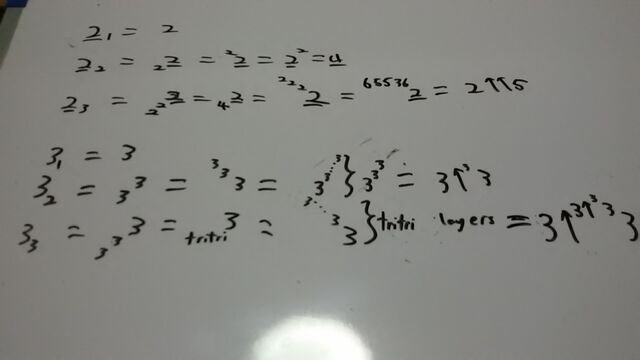 2₁ = 2
2₂ = ₂2 = ²2 = 2² = 4
2₃ = ₂²2 = ₄2 = ²²²2 = ⁶⁵⁵³⁶2 = 2↑↑5
3₁ = 3
3₂ = ₃3 = ³³3 = 3³⋰³}3³³ = 3↑³3
3₃ = ₃₃3 = tritri3 = ³⋱3}tritri layers = 3↑³↑³³3